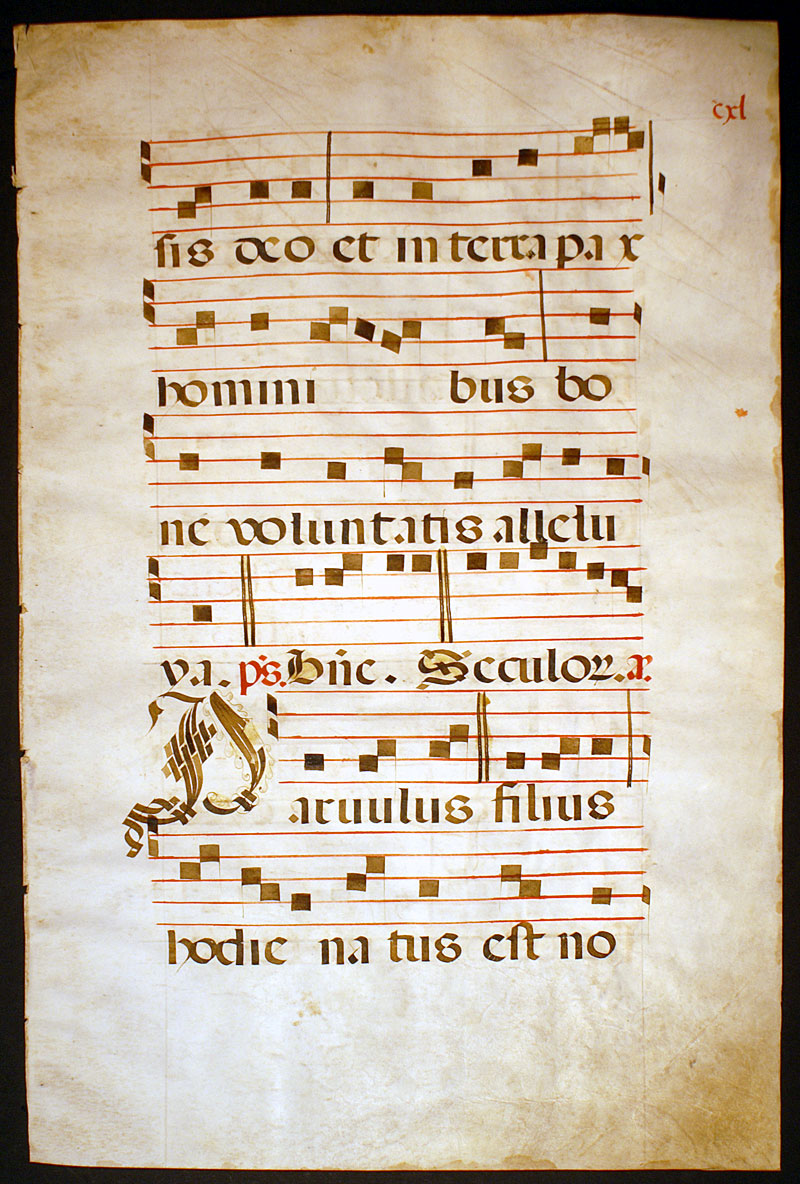 cxl
sis deo et in terra pax
homini bus bo
ne voluntatis allelu
ya. ps. Bñe. Seculor. a.
Paruulus filius
hodie natus est no